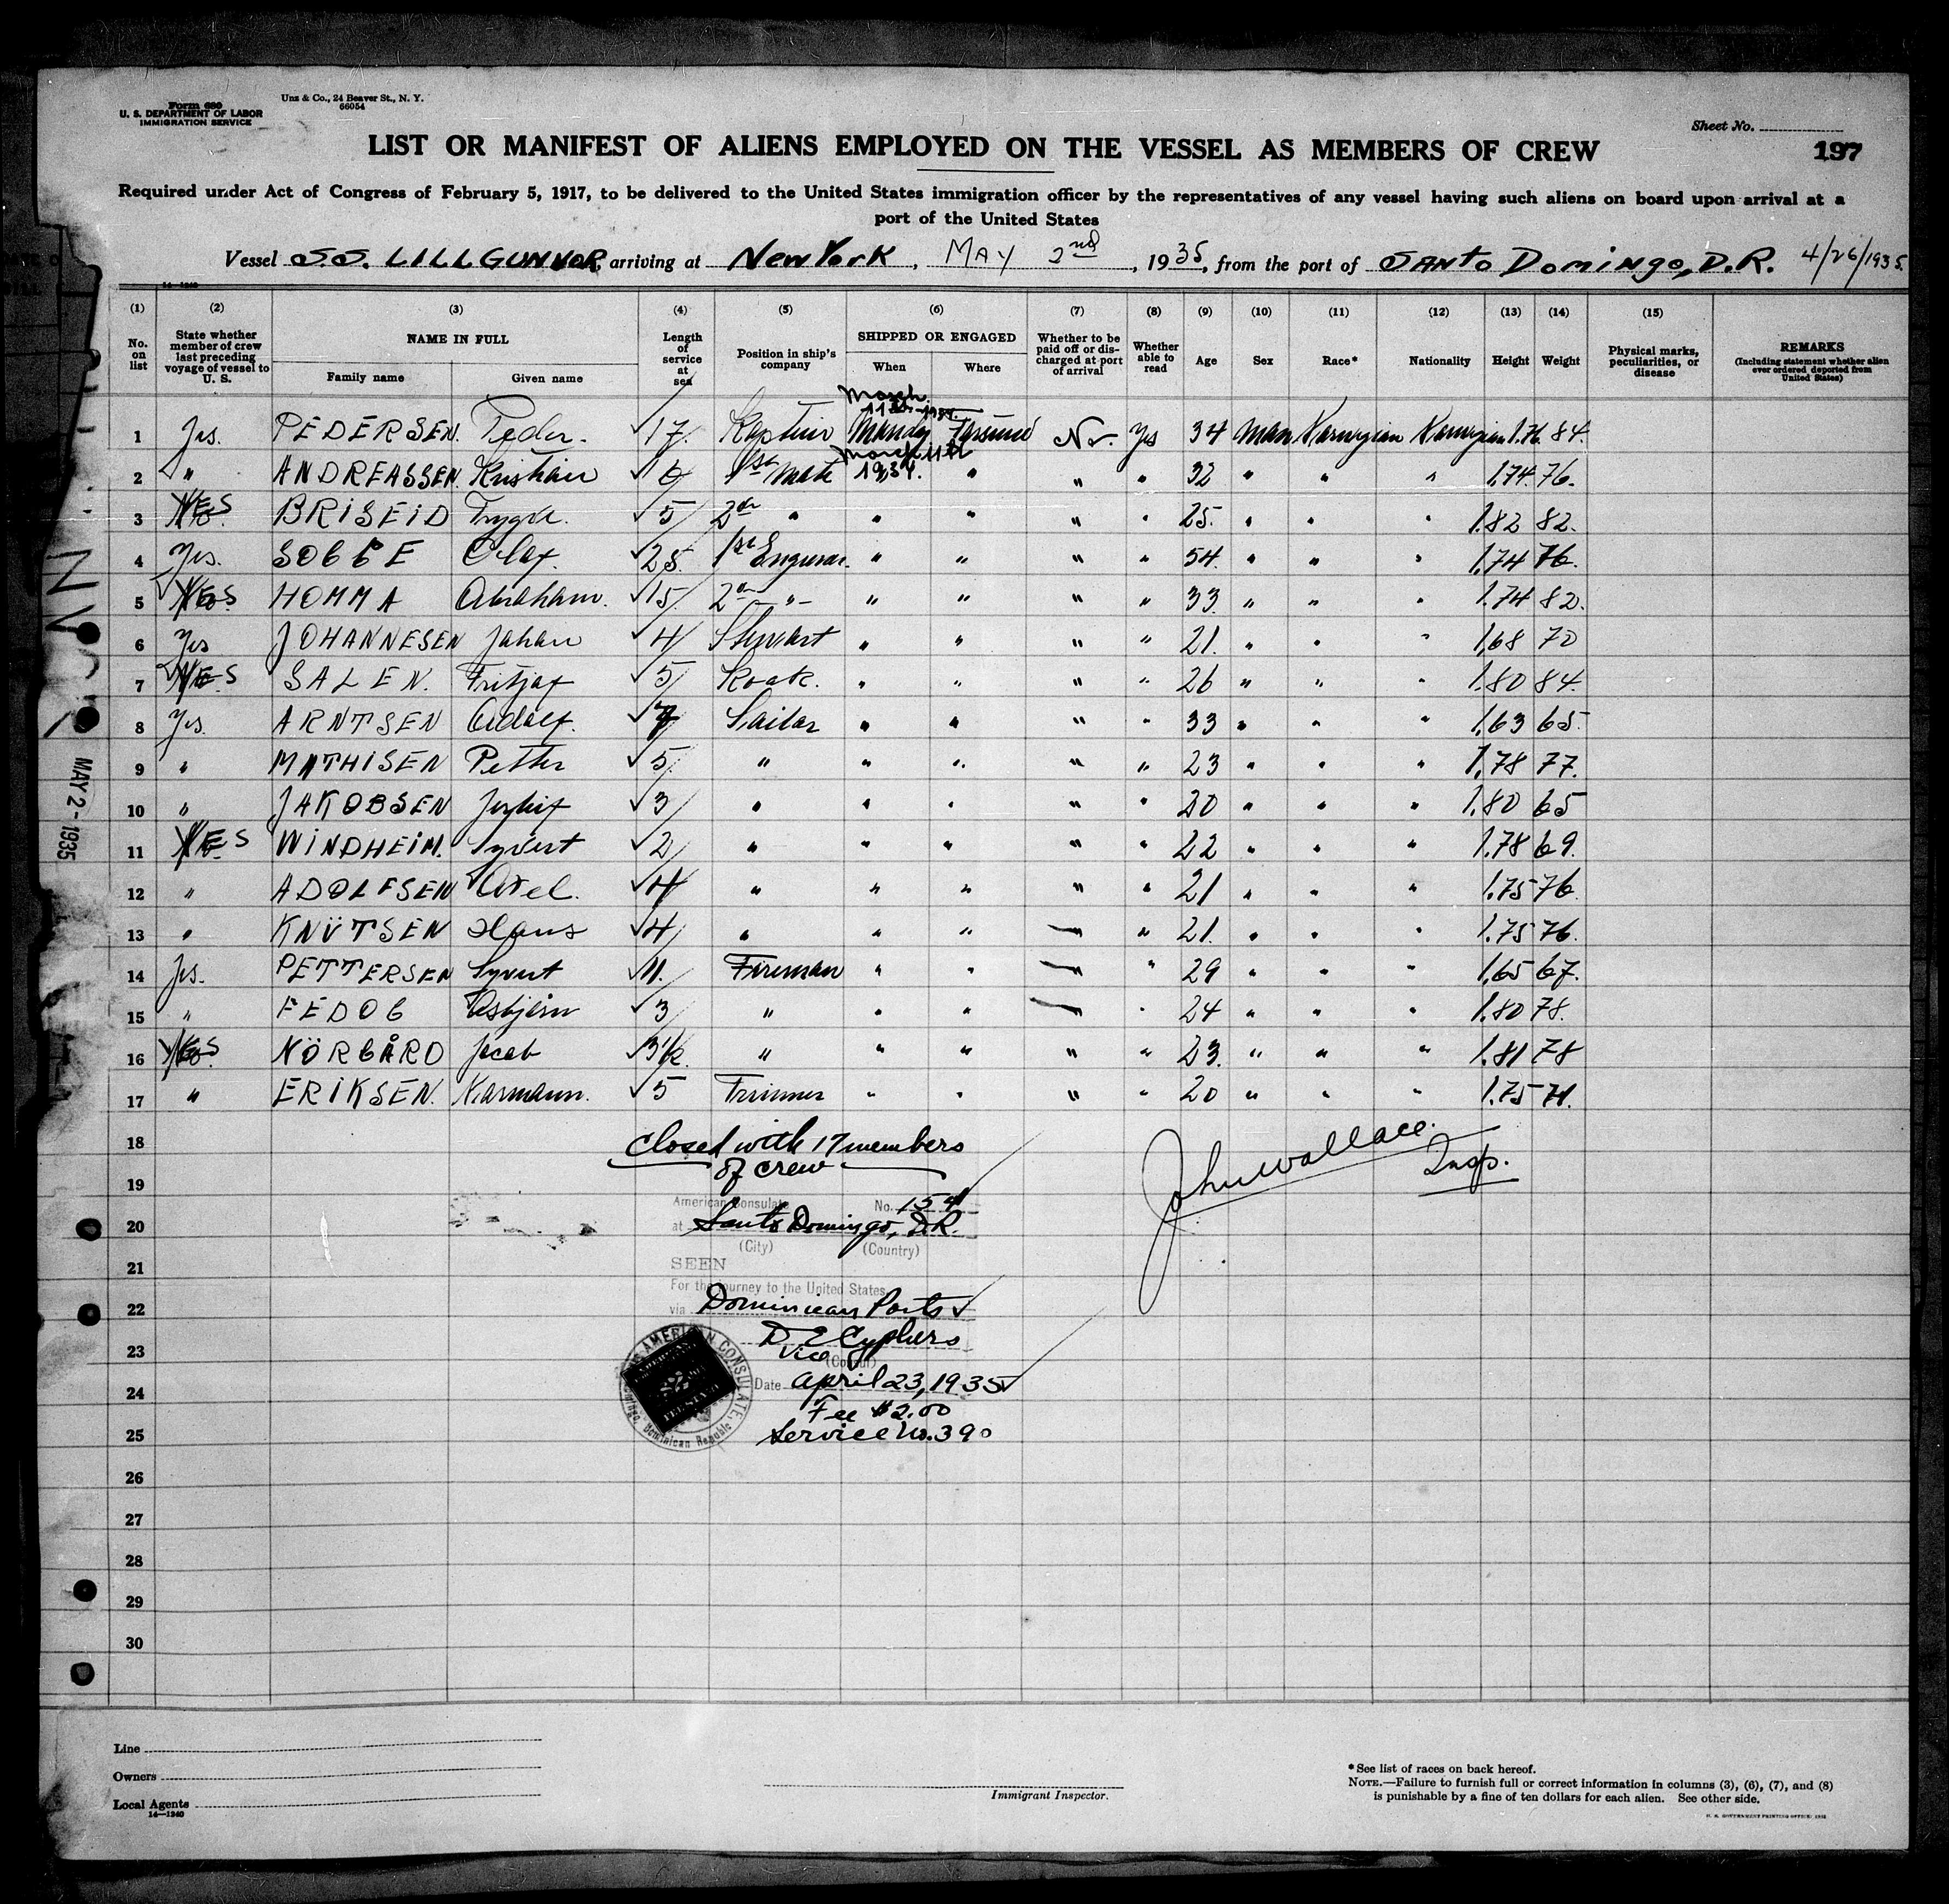 Form 680
U. S. DEPARTMENT OF LABOR
IMMIGRATION SERVICE
Unz & Co., 24 Beaver St., N. Y.
66054
Sheet No.
LIST OR MANIFEST OF ALIENS EMPLOYED ON THE VESSEL AS MEMBERS OF CREW
197
Required under Act of Congress of February 5, 1917, to be delivered to the United States immigration officer by the representatives of any vessel having such aliens on board upon arrival at a
port of the United States
Vessel S.S. LILLGUNVOR, arriving at New York, MAY 2nd, 1935, from the port of SANTO DOMINGO, D.R. 4/26/1935.
14-1240
(1) (2) (3) (4) (5) (6) (7) (8) (9) (10) (11) (12) (13) (14) (15)
No. on list State whether member of crew last preceding voyage of vessel to U. S. NAME IN FULL Family name Given name Length of service at sea Position in ship's company SHIPPED OR ENGAGED When Where Whether to be paid off or discharged at port of arrival Whether able to read Age Sex Race* Nationality Height Weight Physical marks, peculiarities, or disease REMARKS (Including statement whether alien ever ordered deported from United States)
March
11th-1934.
1 Yes. PEDERSEN. Peder. 17. Kaptein Farsund No. Yes 34 Man Norwegian Norwegian 1.76 84.
March 11th
2 " ANDREASSEN. Kristian 1st Mate 1934. " " " 32 " " " 1.74. 76.
3 YES BRISEID Trygve. 5 2nd " " " " " 25. " " " 1.82 82.
4 Yes. SOGGE Olaf. 25. 1st Engineer. " " " " 54. " " " 1.74 76.
5 YES HOMMA Abraham. 15 2nd -"- " " " " 33. " " " 1.74 82.
6 Yes JOHANNESEN Johan 4 Stewart " " " " 21. " " " 1.68 70
7 YES SALEN. Fritjof 5 Kook. " " " " 26 " " " 1.80 84.
8 Yes. ARNTSEN Adolf. 7 Sailor " " " " 33 " " " 1.63 65.
9 " MATHISEN Petter 5. " " " " " 23 " " " 1.78 77.
10 " JAKOBSEN 3 " " " " " 20 " " " 1.80 65
11 YES WINDHEIM. Syvert 2 " " " " " 22 " " " 1.78 69.
12 " ADOLFSEN Axel. 4 " " " " " 21 " " " 1.75 76.
13 " KNÜTSEN Hans 4 " " " " 21. " " " 1.75 76.
14 Yes. PETTERSEN Syvert 11. Fireman " " " 29 " " " 1.65 67.
15 " FEDOG Asbjörn 3 " " " " 24 " " " 1.80 78.
16 YES NÖRGÅRD Jacob 3½. " " " " " 23. " " " 1.81 78
17 " ERIKSEN. Normann. 5 Trimmer " " " " 20 " " " 1.75 71.
18
Closed with 17 members
of crew
John Wallace.
Insp.
19
American Consulate No. 154
20
at Santo Domingo, D.R.
(City) (Country)
21
SEEN
For the journey to the United States
22
via Dominican Ports
D E Cyphers
23
Vice (Consul)
24
Date April 23, 1935
Fee $2.00
25
Service No. 390
AMERICAN CONSULATE.
Dominican Republic
26
27
28
29
30
MAY 2-1935
Line
Owners
Local Agents
14-1240
Immigrant Inspector.
*See list of races on back hereof.
NOTE.—Failure to furnish full or correct information in columns (3), (6), (7), and (8)
is punishable by a fine of ten dollars for each alien. See other side.